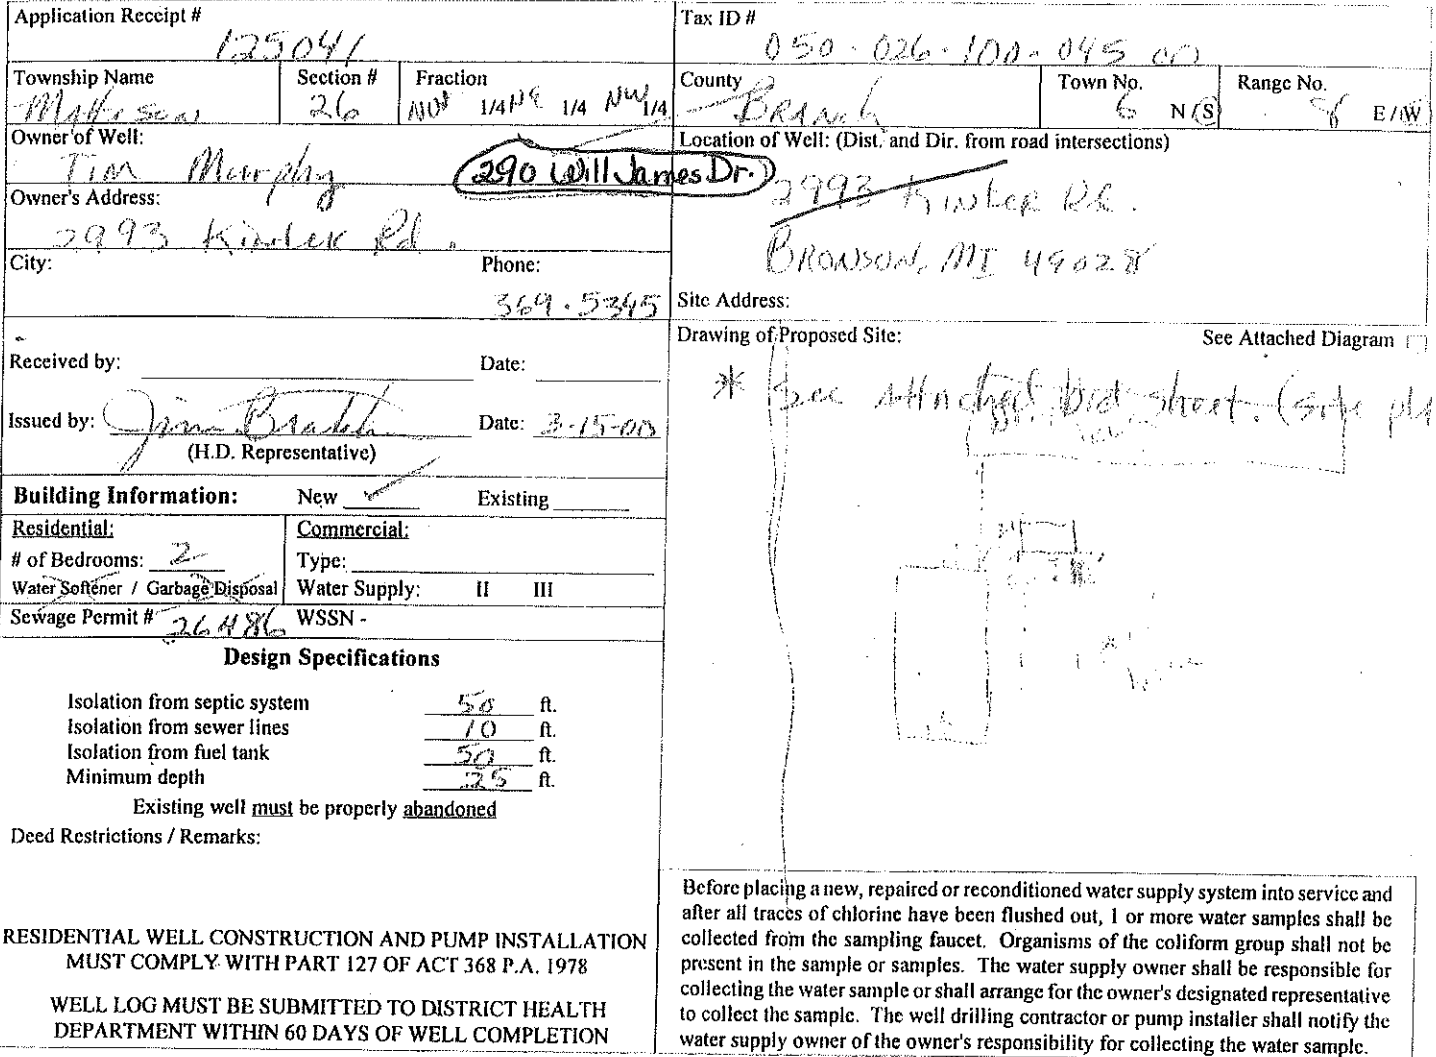 Application Receipt #
125041
Tax ID #
050-026-100-045 00
Township Name
Matteson
Section #
26
Fraction
NW 1/4 NE 1/4 NW 1/4
County
BRANCH
Town No.
6 N/S
Range No.
8 E/W
Owner of Well:
Tim Murphy
290 Will James Dr.
Location of Well: (Dist. and Dir. from road intersections)
2993 Kinter Rd.
BRONSON, MI 49028
Owner's Address:
2993 Kinter Rd.
City:
Phone:
369-5345
Site Address:
Drawing of Proposed Site:
See Attached Diagram
* See Attached bid sheet. (site
Received by:
Date:
Issued by:
Date: 3-15-00
(H.D. Representative)
Building Information: New ✓ Existing
Residential:
# of Bedrooms: 2
Water Softener / Garbage Disposal
Commercial:
Type:
Water Supply: II III
Sewage Permit # 26486
WSSN -
Design Specifications
Isolation from septic system 50 ft.
Isolation from sewer lines 10 ft.
Isolation from fuel tank 50 ft.
Minimum depth 25 ft.
Existing well must be properly abandoned
Deed Restrictions / Remarks:
RESIDENTIAL WELL CONSTRUCTION AND PUMP INSTALLATION
MUST COMPLY WITH PART 127 OF ACT 368 P.A. 1978
WELL LOG MUST BE SUBMITTED TO DISTRICT HEALTH
DEPARTMENT WITHIN 60 DAYS OF WELL COMPLETION
Before placing a new, repaired or reconditioned water supply system into service and
after all traces of chlorine have been flushed out, 1 or more water samples shall be
collected from the sampling faucet. Organisms of the coliform group shall not be
present in the sample or samples. The water supply owner shall be responsible for
collecting the water sample or shall arrange for the owner's designated representative
to collect the sample. The well drilling contractor or pump installer shall notify the
water supply owner of the owner's responsibility for collecting the water sample.